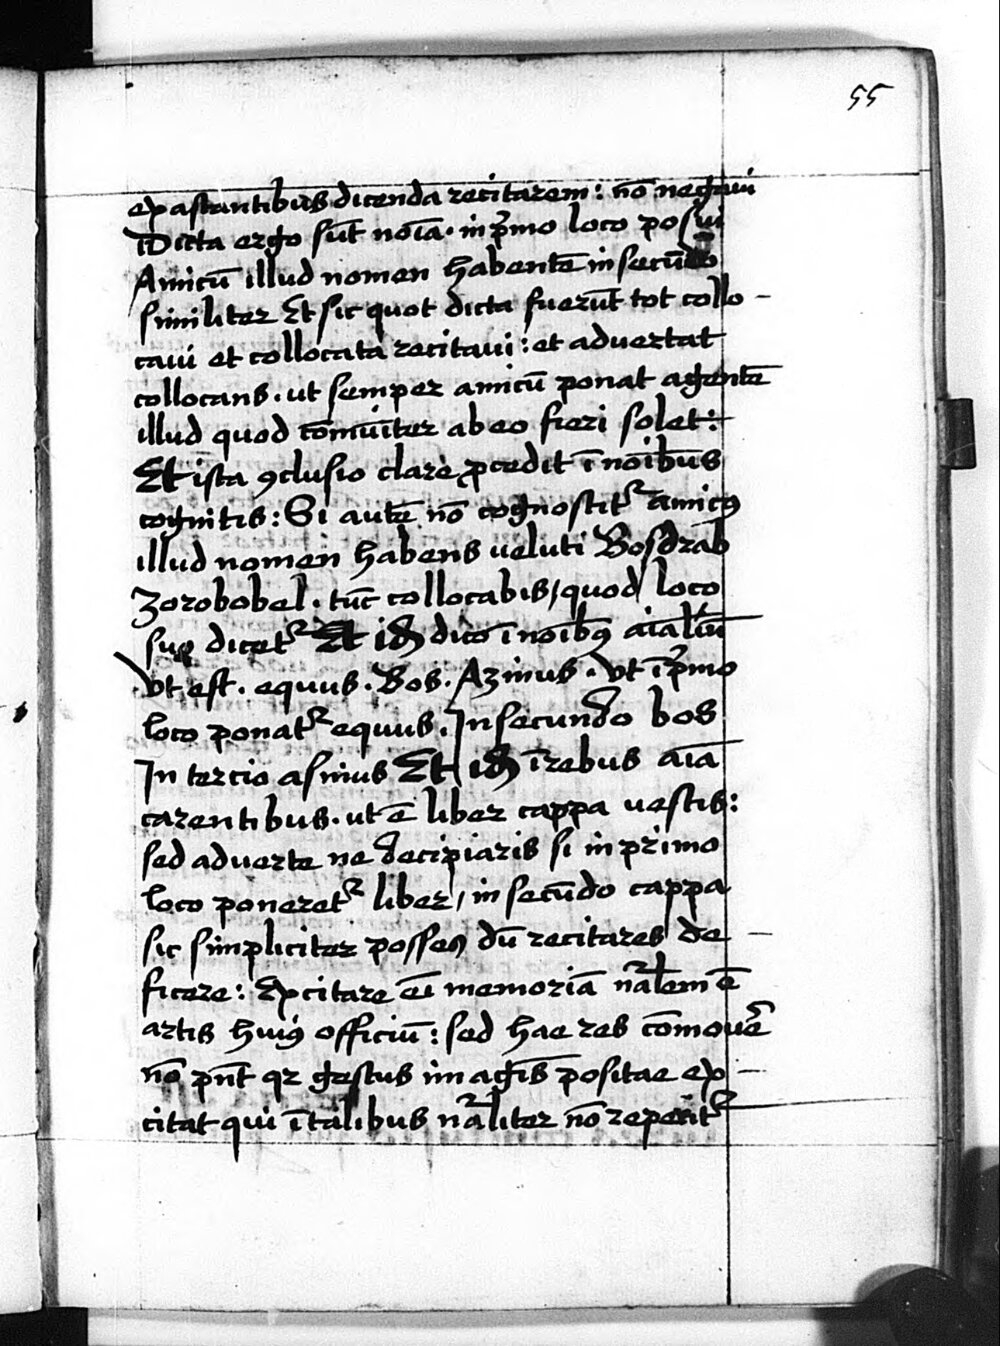 55
expastantibus dicenda recitarem: nō negaui
Dicta ergo sūt noīa. in p̄mo loco posui
Amicū illud nomen habentē in secūdo
similiter Et sic quot dicta fuerūt tot collo –
caui et collocata recitaui: et aduertat
collocans. ut semper amicū ponat agentē
illud quod cōmūiter ab eo fieri solet:
Et ista ꝯclusio clare ꝓcedit ī noībus
cognitis: Si autē nō cognoscitᷣ amicꝰ
illud nomen habens ueluti Bosdrab
Zorobobel. tūc collocabis/ quod loco
suo dicetᷣ Et idē dico ī noībꝰ aīaliū
Vt est. equus. Bos. Azinus. Vt ī p̄mo
loco ponatᷣ equus. In secundo bos
In tercio asinus Et idē ī rebus aīa
carentibus. ut ē liber cappa uestis:
sed aduerte ne decipiaris si in primo
loco poneretᷣ liber/ in secūdo cappa
sic simpliciter posses dū recitares de –
ficere: Excitare eī memoriā nāļem ē
artis huiꝰ officiū: sed hae res cōmouē
nō pn̄t qꝛ gestus imagīs positae ex –
citat qui ī talibus nāliter nō reperitᷣ